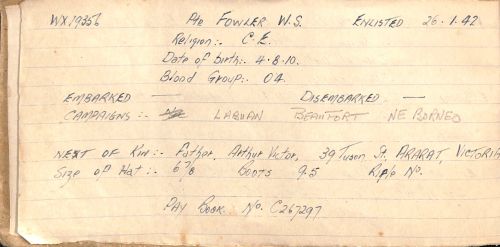 WX19356 Pte FOWLER W.S. ENLISTED 26.1.42
Religion:. C.E.
Date of birth:. 4.8.10.
Blood Group:. O4.
EMBARKED — DISEMBARKED —
CAMPAIGNS:- LABUAN BEAUFORT NE BORNEO
NEXT OF Kin:- Father, Arthur Victor, 39 Tuson St. ARARAT, VICTORIA
Size of Hat:- 6 7/8 Boots 9.5 Rifle No.
PAY BOOK. No. C267297